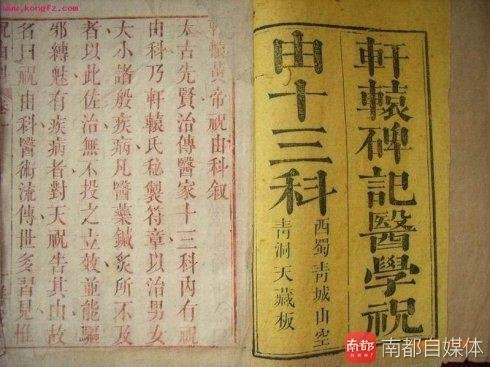 www.kongfz.com
軒轅碑記醫學祝
由十三科
西蜀青城山空
青洞天藏板
轅黃帝祝由科叙
太古先賢治傳醫家十三科內有祝
由科乃軒轅氏秘製符章以治男女
大小諸般疾病凡醫藥鍼炙所不及
者以此佐治無不投之立效並能驅
邪縛魅有疾病者對天祝告其由故
名曰祝由科醫術流傳世多習見惟
南都
南都自媒体